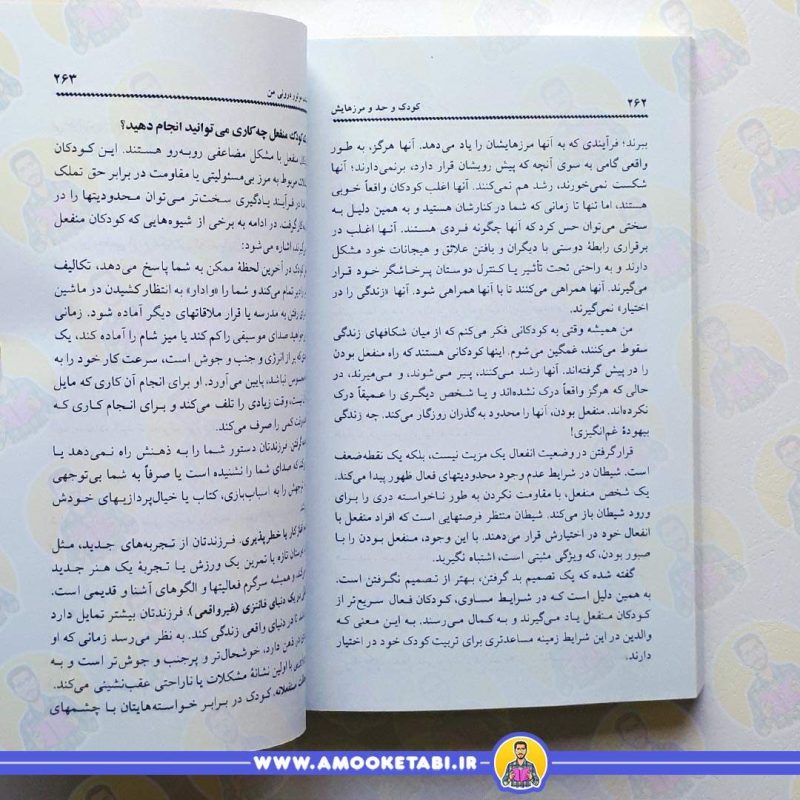 ۲۶۲
کودک و حد و مرزهایش
ببرند؛ فرآیندی که به آنها مرزهایشان را یاد می‌دهد. آنها هرگز، به طور
واقعی گامی به سوی آنچه که پیش رویشان قرار دارد، برنمی‌دارند؛ آنها
شکست نمی‌خورند، رشد هم نمی‌کنند. آنها اغلب کودکان واقعاً خوبی
هستند، اما تنها تا زمانی که شما در کنارشان هستید و به همین دلیل به
سختی می‌توان حس کرد که آنها چگونه فردی هستند. آنها اغلب در
برقراری رابطهٔ دوستی با دیگران و یافتن علائق و هیجانات خود مشکل
دارند و به راحتی تحت تأثیر یا کنترل دوستان پرخاشگر خود قرار
می‌گیرند. آنها همراهی می‌کنند تا با آنها همراهی شود. آنها «زندگی را در
اختیار» نمی‌گیرند.
من همیشه وقتی به کودکانی فکر می‌کنم که از میان شکافهای زندگی
سقوط می‌کنند، غمگین می‌شوم. اینها کودکانی هستند که راه منفعل بودن
را در پیش گرفته‌اند. آنها رشد می‌کنند، پیر می‌شوند، و می‌میرند، در
حالی که هرگز واقعاً درک نشده‌اند و یا شخص دیگری را عمیقاً درک
نکرده‌اند. منفعل بودن، آنها را محدود به گذران روزگار می‌کند. چه زندگی
بیهودهٔ غم‌انگیزی!
قرار گرفتن در وضعیت انفعال یک مزیت نیست، بلکه یک نقطه‌ضعف
است. شیطان در شرایط عدم وجود محدودیتهای فعال ظهور پیدا می‌کند.
یک شخص منفعل، با مقاومت نکردن به طور ناخواسته دری را برای
ورود شیطان باز می‌کند. شیطان منتظر فرصتهایی است که افراد منفعل با
انفعال خود در اختیارش قرار می‌دهند. با این وجود، منفعل بودن را با
صبور بودن، که ویژگی مثبتی است، اشتباه نگیرید.
گفته شده که یک تصمیم بد گرفتن، بهتر از تصمیم نگرفتن است.
به همین دلیل است که در شرایط مساوی، کودکان فعال سریع‌تر از
کودکان منفعل یاد می‌گیرند و به کمال می‌رسند. به این معنی که
والدین در این شرایط زمینه مساعدتری برای تربیت کودک خود در اختیار
دارند.
۲۶۳
درونی من
کودک منفعل چه کاری می‌توانید انجام دهید؟
منفعل با مشکل مضاعفی روبه‌رو هستند. این کودکان
مربوط به مرز بی‌مسئولیتی یا مقاومت در برابر حق تملک
در فرآیند یادگیری سخت‌تر می‌توان محدودیتها را در
گرفت. در ادامه به برخی از شیوه‌هایی که کودکان منفعل
اشاره می‌شود:
کودک در آخرین لحظهٔ ممکن به شما پاسخ می‌دهد، تکالیف
تمام می‌کند و شما را «وادار» به انتظار کشیدن در ماشین
رفتن به مدرسه یا قرار ملاقاتهای دیگر آماده شود. زمانی
صدای موسیقی را کم کند یا میز شام را آماده کند، یک
پر از انرژی و جنب و جوش است، سرعت کار خود را به
پایین می‌آورد. او برای انجام آن کاری که مایل
وقت زیادی را تلف می‌کند و برای انجام کاری که
کمی را صرف می‌کند.
گرفتن. فرزندتان دستور شما را به ذهنش راه نمی‌دهد یا
که صدای شما را نشنیده است یا صرفاً به شما بی‌توجهی
توجهش را به اسباب‌بازی، کتاب یا خیال‌پردازیهای خودش
کار یا خطرپذیری. فرزندتان از تجربه‌های جدید، مثل
دوستان تازه یا تمرین یک ورزش یا تجربهٔ یک هنر جدید
و همیشه سرگرم فعالیتها و الگوهای آشنا و قدیمی است.
یک دنیای فانتزی (غیرواقعی). فرزندتان بیشتر تمایل دارد
تا در دنیای واقعی زندگی کند. به نظر می‌رسد زمانی که او
در ذهن دارد، خوشحال‌تر و پرجنب و جوش‌تر است و به
با اولین نشانهٔ مشکلات یا ناراحتی عقب‌نشینی می‌کند.
منفعلانه. کودک در برابر خواسته‌هایتان با چشمهای
WWW.AMOOKETABI.IR